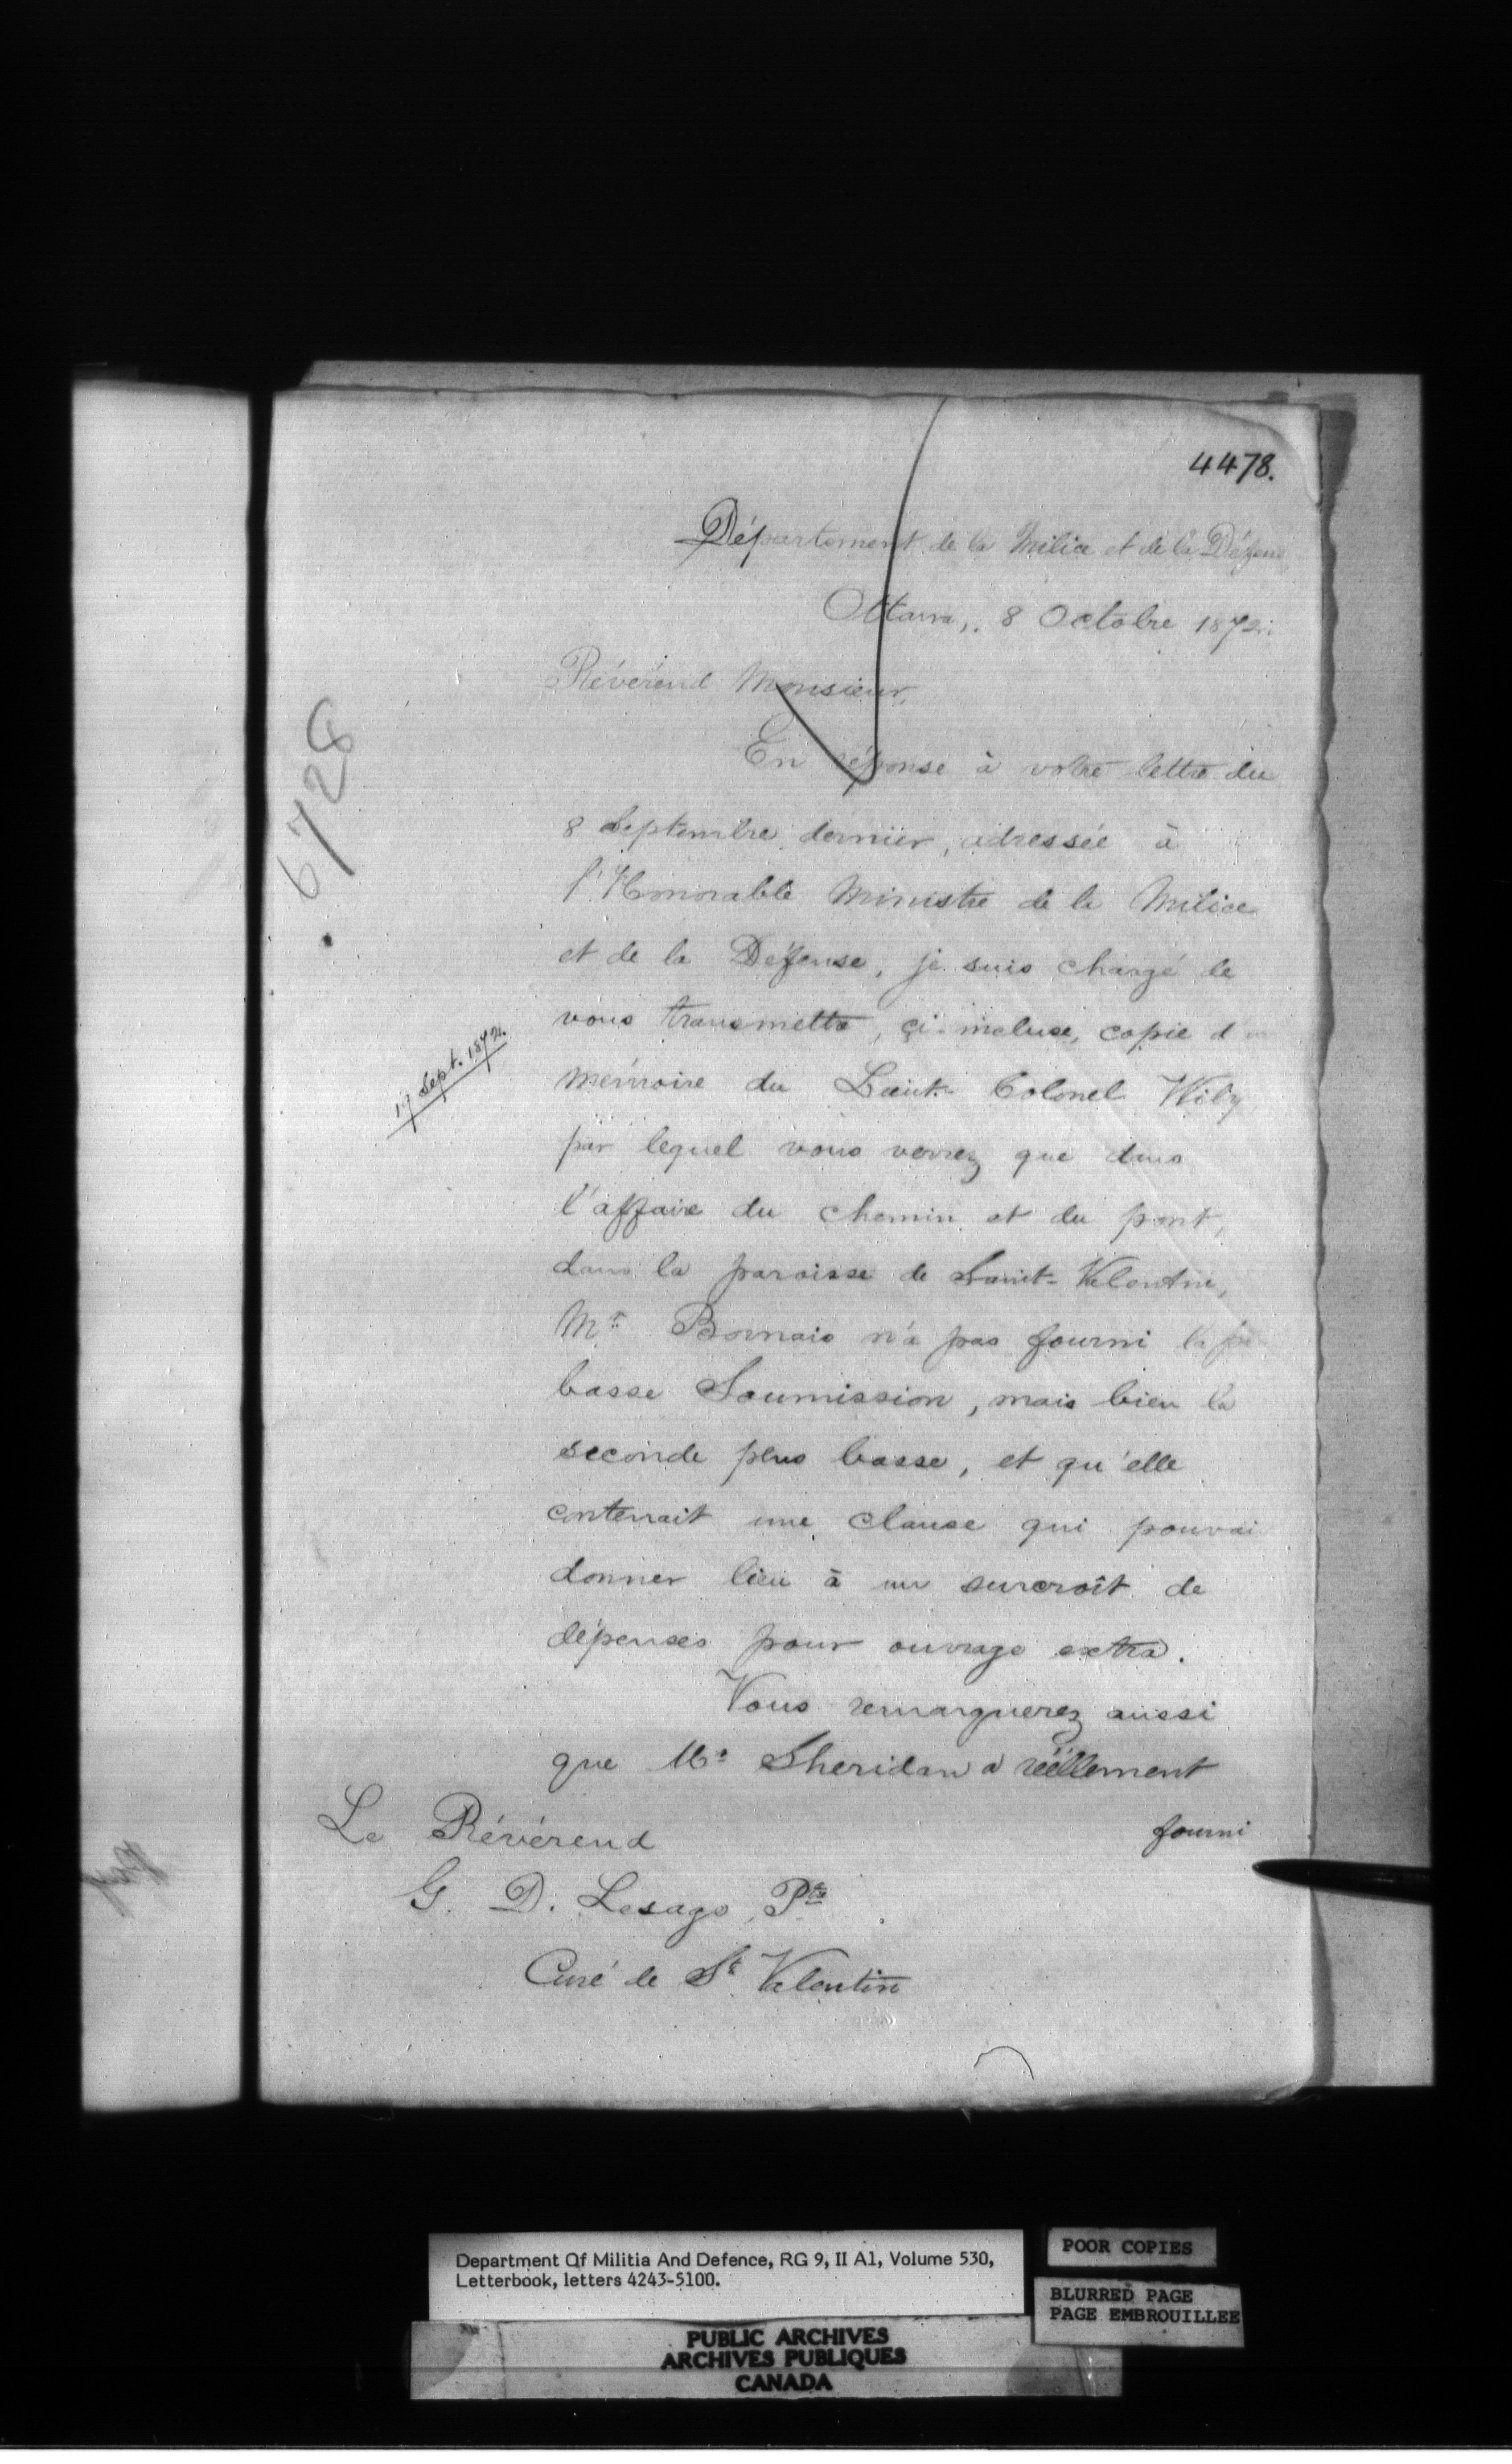 4478.
Département de la Milice et de la Défense
Ottawa, 8 Octobre 1872.
Révérend Monsieur,
En réponse à votre lettre du
8 Septembre dernier, adressée à
l'Honorable Ministre de la Milice
et de la Défense, je suis chargé de
vous transmettre, çi-incluse, copie d
mémoire du Lieut. Colonel Wily
par lequel vous verrez que dans
l'affaire du chemin et du pont,
dans la paroisse de Saint-Valentin,
Mr. Bornais n'a pas fourni la
basse Soumission, mais bien la
seconde plus basse, et qu'elle
contenait une clause qui pouvai
donner lieu à un surcroît de
dépenses pour ouvrage extra.
Vous remarquerez aussi
que Mr. Sheridan a réellement
fourni
Le Révérend
G. D. Lesage, Ptre
Curé de St. Valentin
6728
17 Sept. 1872.
Department Of Militia And Defence, RG 9, II A1, Volume 530,
Letterbook, letters 4243-5100.
POOR COPIES
BLURRED PAGE
PAGE EMBROUILLEE
PUBLIC ARCHIVES
ARCHIVES PUBLIQUES
CANADA